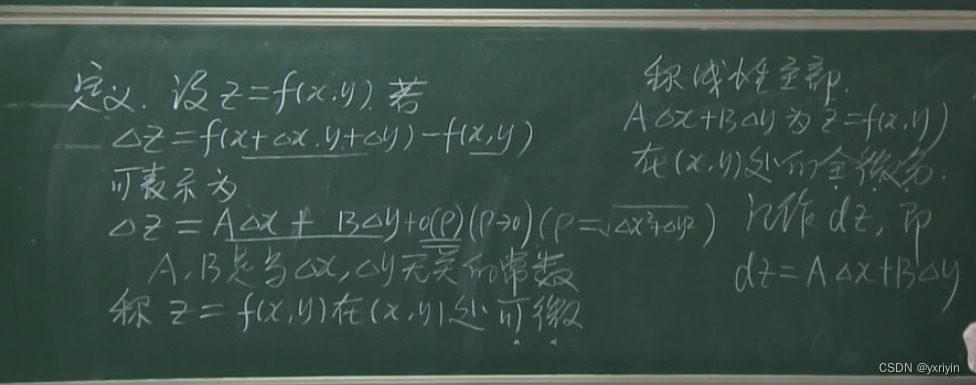 定义. 设 z=f(x,y). 若
Δz=f(x+Δx,y+Δy)-f(x,y)
可表示为
Δz=AΔx+BΔy+o(ρ)(ρ→0)(ρ=√Δx²+Δy²)
A,B是与Δx,Δy无关的常数
称 z=f(x,y)在(x,y)处可微
称线性主部.
AΔx+BΔy为z=f(x,y)
在(x,y)处的全微分.
记作dz,即
dz=AΔx+BΔy
CSDN @yxriyin